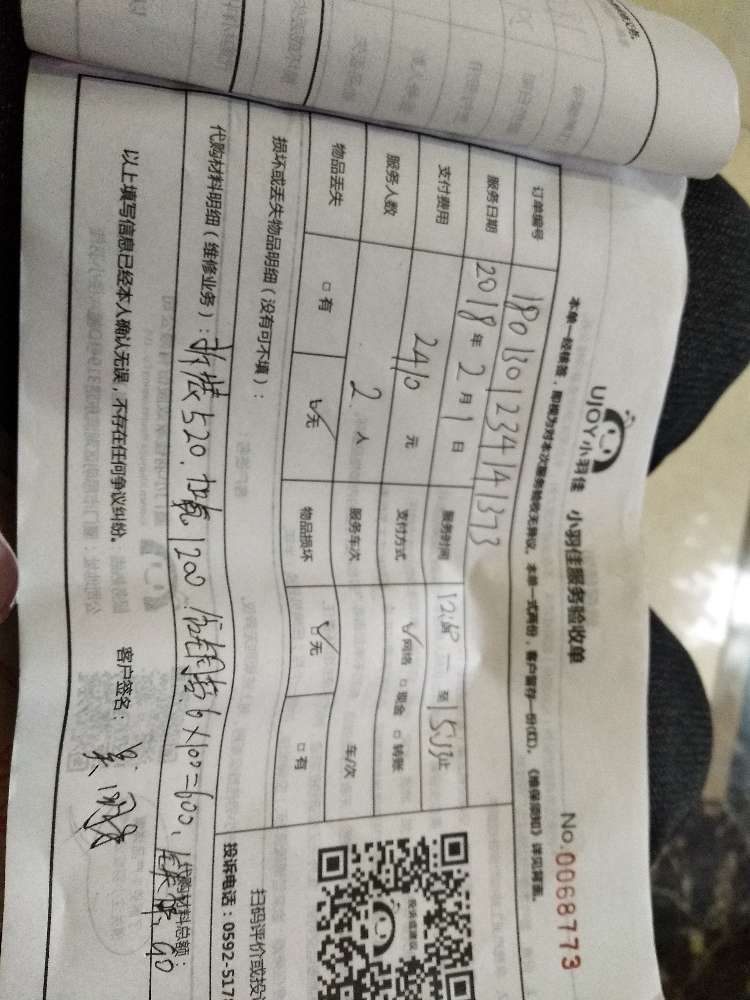 UJOY小羽佳 小羽佳服务验收单
No.0068773
本单一经接签，即视为对本次服务验收无异议。本单一式两份，客户留存一份(红)。《维保须知》详见背面。
订单编号 1801301234141373
服务日期 2018年2月1日 服务时间 至15:33止
支付费用 2410元 支付方式 ☑网络 □现金 □转账
服务人数 2人 服务车次 车/次
物品丢失 □有 ☑无 物品损坏 ☑无 □有
损坏或丢失物品明细（没有可不填）：
代购材料明细（维修业务）：拆装520. 加氟1200. 铜管6×100=600,
代购材料总额： 90
以上填写信息已经本人确认无误，不存在任何争议纠纷。 客户签名：
投诉信息建议
扫码评价或投
投诉电话：0592-517